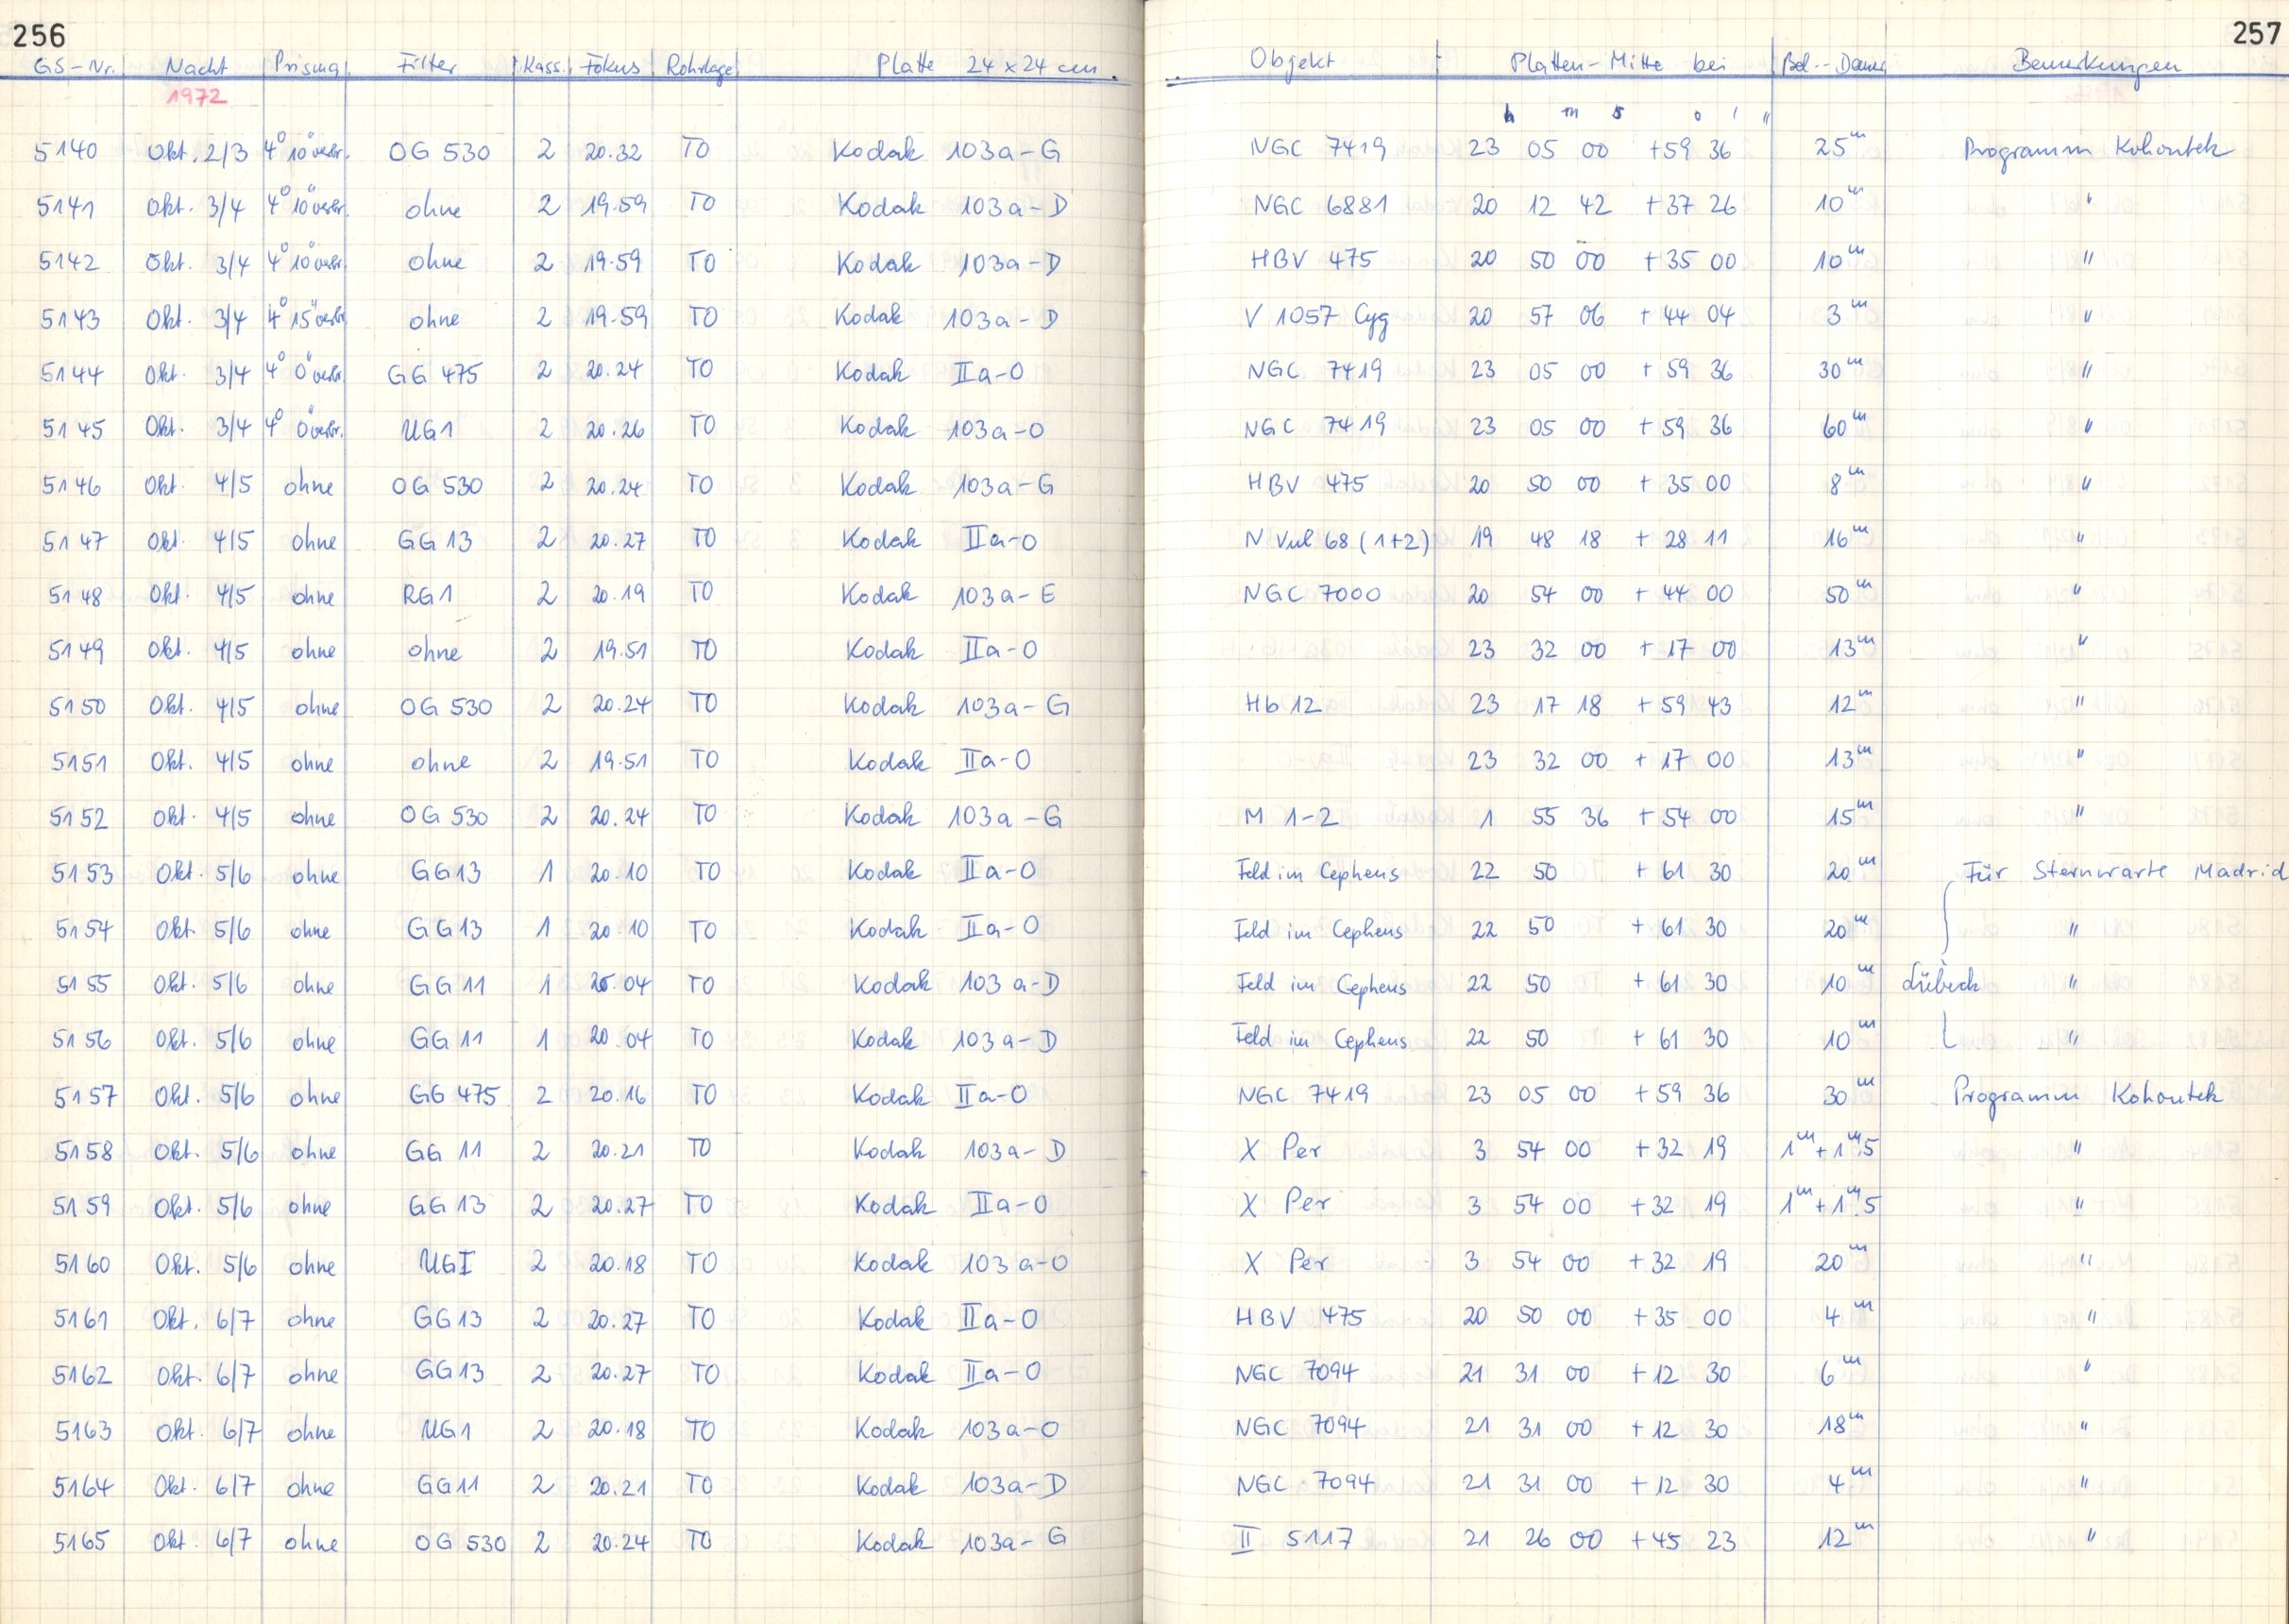 256 257
GS-Nr. Nacht Prisma Filter Kass. Fokus Rohrlage Platte 24 x 24 cm. Objekt Platten-Mitte bei Bel.-Dauer Bemerkungen
1972
h m s ° ' "
5140 Okt. 2/3 4° 10 överbr. OG 530 2 20.32 TO Kodak 103a-G NGC 7419 23 05 00 +59 36 25m Programm Kohoutek
5141 Okt. 3/4 4° 10 överbr. ohne 2 19.59 TO Kodak 103a-D NGC 6881 20 12 42 +37 26 10m "
5142 Okt. 3/4 4° 10 överbr. ohne 2 19.59 TO Kodak 103a-D HBV 475 20 50 00 +35 00 10m "
5143 Okt. 3/4 4° 15 överbr. ohne 2 19.59 TO Kodak 103a-D V 1057 Cyg 20 57 06 +44 04 3m "
5144 Okt. 3/4 4° 0 överbr. GG 475 2 20.24 TO Kodak IIa-O NGC 7419 23 05 00 +59 36 30m "
5145 Okt. 3/4 4° 0 överbr. UG1 2 20.26 TO Kodak 103a-O NGC 7419 23 05 00 +59 36 60m "
5146 Okt. 4/5 ohne OG 530 2 20.24 TO Kodak 103a-G HBV 475 20 50 00 +35 00 8m "
5147 Okt. 4/5 ohne GG 13 2 20.27 TO Kodak IIa-O N Vul 68 (1+2) 19 48 18 +28 11 16m "
5148 Okt. 4/5 ohne RG1 2 20.19 TO Kodak 103a-E NGC 7000 20 54 00 +44 00 50m "
5149 Okt. 4/5 ohne ohne 2 19.51 TO Kodak IIa-O 23 32 00 +17 00 13m "
5150 Okt. 4/5 ohne OG 530 2 20.24 TO Kodak 103a-G Hb 12 23 17 18 +59 43 12m "
5151 Okt. 4/5 ohne ohne 2 19.51 TO Kodak IIa-O 23 32 00 +17 00 13m "
5152 Okt. 4/5 ohne OG 530 2 20.24 TO Kodak 103a-G M 1-2 1 55 36 +54 00 15m "
5153 Okt. 5/6 ohne GG13 1 20.10 TO Kodak IIa-O Feld im Cepheus 22 50 +61 30 20m Für Sternwarte Madrid
5154 Okt. 5/6 ohne GG13 1 20.10 TO Kodak IIa-O Feld im Cepheus 22 50 +61 30 20m "
5155 Okt. 5/6 ohne GG11 1 20.04 TO Kodak 103a-D Feld im Cepheus 22 50 +61 30 10m Lübeck "
5156 Okt. 5/6 ohne GG11 1 20.04 TO Kodak 103a-D Feld im Cepheus 22 50 +61 30 10m "
5157 Okt. 5/6 ohne GG 475 2 20.16 TO Kodak IIa-O NGC 7419 23 05 00 +59 36 30m Programm Kohoutek
5158 Okt. 5/6 ohne GG 11 2 20.21 TO Kodak 103a-D X Per 3 54 00 +32 19 1m+1m.5 "
5159 Okt. 5/6 ohne GG 13 2 20.27 TO Kodak IIa-O X Per 3 54 00 +32 19 1m+1m.5 "
5160 Okt. 5/6 ohne UGI 2 20.18 TO Kodak 103a-O X Per 3 54 00 +32 19 20m "
5161 Okt. 6/7 ohne GG13 2 20.27 TO Kodak IIa-O HBV 475 20 50 00 +35 00 4m "
5162 Okt. 6/7 ohne GG13 2 20.27 TO Kodak IIa-O NGC 7094 21 31 00 +12 30 6m "
5163 Okt. 6/7 ohne UG1 2 20.18 TO Kodak 103a-O NGC 7094 21 31 00 +12 30 18m "
5164 Okt. 6/7 ohne GG11 2 20.21 TO Kodak 103a-D NGC 7094 21 31 00 +12 30 4m "
5165 Okt. 6/7 ohne OG 530 2 20.24 TO Kodak 103a-G II 5117 21 26 00 +45 23 12m "